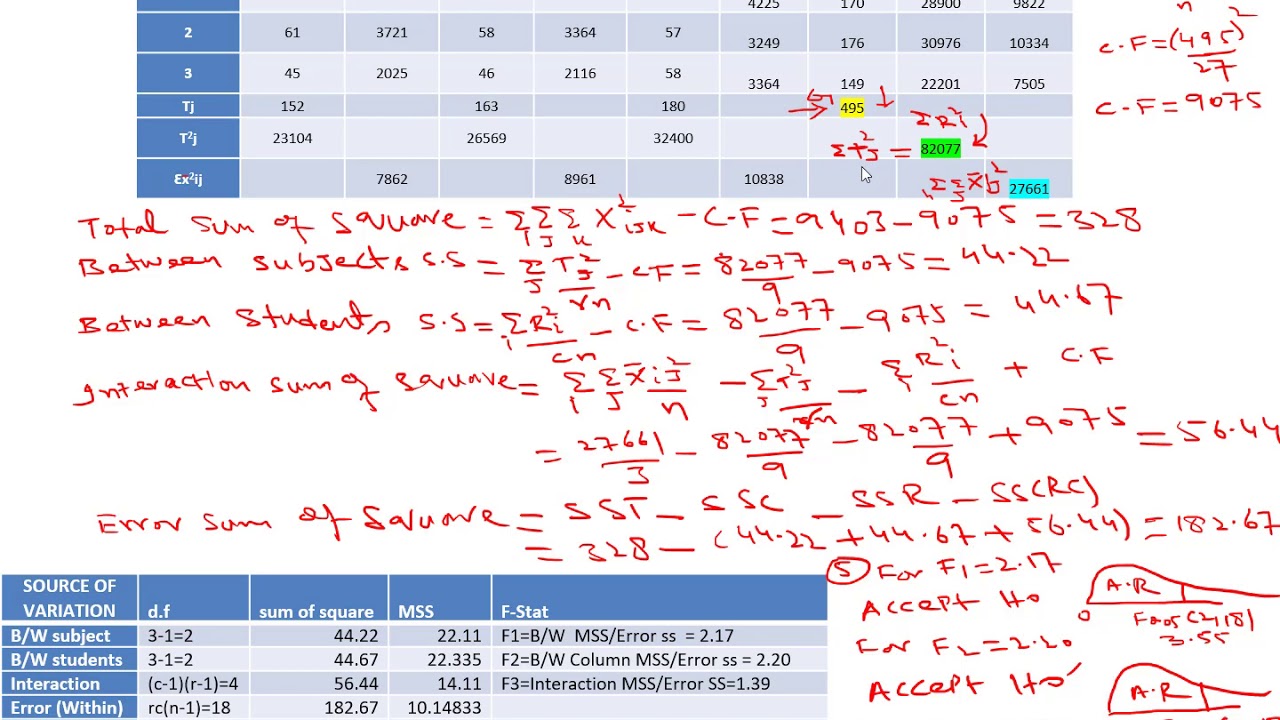 4225 170 28900 9822
2 61 3721 58 3364 57 3249 176 30976 10334
3 45 2025 46 2116 58 3364 149 22201 7505
Tj 152 163 180 495
T²j 23104 26569 32400 ΣT²j = 82077
ΣR²i
Ɛx²ij 7862 8961 10838 27661
n
C.F = (495)² / 27
C.F = 9075
Total Sum of Square = Σi Σj Σk X²ijk - C.F = 9403 - 9075 = 328
Between Subjects S.S = Σj T²j / rn - CF = 82077 / 9 - 9075 = 44.22
Between Students S.S = Σi R²i / cn - C.F = 82077 / 9 - 9075 = 44.67
Interaction sum of Square = Σi Σj X̄ij² / n - Σj T²j / rn - Σi R²i / cn + C.F
= 27661 / 3 - 82077 / 9 - 82077 / 9 + 9075 = 56.44
Error Sum of Square = SST - SSC - SSR - SS(RC)
= 328 - (44.22 + 44.67 + 56.44) = 182.67
⑤ For F1 = 2.17
Accept Ho
A.R
0
F0.05(2,18)
3.55
For F2 = 2.20
Accept Ho'
A.R
SOURCE OF VARIATION d.f sum of square MSS F-Stat
B/W subject 3-1=2 44.22 22.11 F1=B/W MSS/Error ss = 2.17
B/W students 3-1=2 44.67 22.335 F2=B/W Column MSS/Error ss = 2.20
Interaction (c-1)(r-1)=4 56.44 14.11 F3=Interaction MSS/Error SS=1.39
Error (Within) rc(n-1)=18 182.67 10.14833